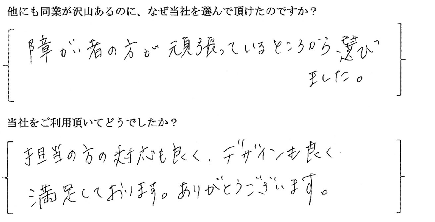 他にも同業が沢山あるのに、なぜ当社を選んで頂けたのですか？
障がい者の方が頑張っているところから選び
ました。
当社をご利用頂いてどうでしたか？
担当の方の対応も良く、デザインも良く
満足しております。ありがとうございます。